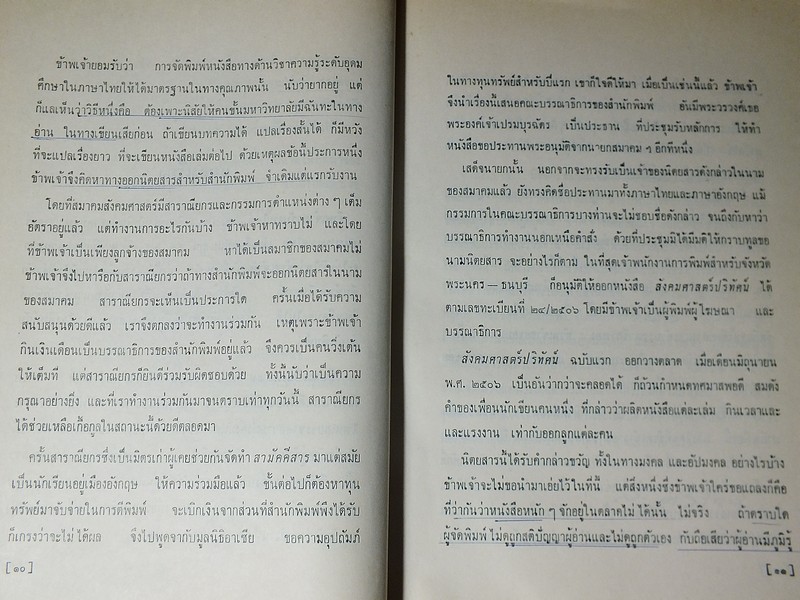 ข้าพเจ้ายอมรับว่า การจัดพิมพ์หนังสือทางด้านวิชาความรู้ระดับอุดม
ศึกษาในภาษาไทยให้ได้มาตรฐานในทางคุณภาพนั้น นับว่ายากอยู่ แต่
ก็แลเห็นว่าวิธีหนึ่งคือ ต้องเพาะนิสัยให้คนชั้นมหาวิทยาลัยมีฉันทะในทาง
อ่าน ในทางเขียนเสียก่อน ถ้าเขียนบทความได้ แปลเรื่องสั้นได้ ก็มีหวัง
ที่จะแปลเรื่องยาว ที่จะเขียนหนังสือเล่มต่อไป ด้วยเหตุผลข้อนี้ประการหนึ่ง
ข้าพเจ้าจึงคิดหาทางออกนิตยสารสำหรับสำนักพิมพ์ จำเดิมแต่แรกรับงาน
โดยที่สมาคมสังคมศาสตร์มีสาราณียกรและกรรมการตำแหน่งต่าง ๆ เต็ม
อัตราอยู่แล้ว แต่ทำงานการอะไรกันบ้าง ข้าพเจ้าหาทราบไม่ และโดย
ที่ข้าพเจ้าเป็นเพียงลูกจ้างของสมาคม หาได้เป็นสมาชิกของสมาคมไม่
ข้าพเจ้าจึงไปหารือกับสาราณียกรว่าถ้าทางสำนักพิมพ์จะออกนิตยสารในนาม
ของสมาคม สาราณียกรจะเห็นเป็นประการใด ครั้นเมื่อได้รับความ
สนับสนุนด้วยดีแล้ว เราจึงตกลงว่าจะทำงานร่วมกัน เหตุเพราะข้าพเจ้า
กินเงินเดือนเป็นบรรณาธิการของสำนักพิมพ์อยู่แล้ว จึงควรเป็นคนวิ่งเต้น
ให้เต็มที่ แต่สาราณียกรก็ยินดีร่วมรับผิดชอบด้วย ทั้งนี้นับว่าเป็นความ
กรุณาอย่างยิ่ง และที่เราทำงานร่วมกันมาจนตราบเท่าทุกวันนี้ สาราณียกร
ได้ช่วยเหลือเกื้อกูลในสถานะนี้ด้วยดีตลอดมา
ครั้นสาราณียกรซึ่งเป็นมิตรเก่าผู้เคยช่วยกันจัดทำ สามัคคีสาร มาแต่สมัย
เป็นนักเรียนอยู่เมืองอังกฤษ ให้ความร่วมมือแล้ว ขั้นต่อไปก็ต้องหาทุน
ทรัพย์มาจับจ่ายในการตีพิมพ์ จะเบิกเงินจากส่วนที่สำนักพิมพ์พึงได้รับ
ก็เกรงว่าจะไม่ได้ผล จึงไปพูดจากับมูลนิธิอาเซีย ขอความอุปถัมภ์
[ ๑๐ ]
ในทางทุนทรัพย์สำหรับปีแรก เขาก็ใจดีให้มา เมื่อเป็นเช่นนี้แล้ว ข้าพเจ้า
จึงนำเรื่องนี้เสนอคณะบรรณาธิการของสำนักพิมพ์ อันมีพระวรวงศ์เธอ
พระองค์เจ้าเปรมบุรฉัตร เป็นประธาน ที่ประชุมรับหลักการ ให้ทำ
หนังสือขอประทานพระอนุมัติจากนายกสมาคม ฯ อีกทีหนึ่ง
เสด็จนายกนั้น นอกจากจะทรงรับเป็นเจ้าของนิตยสารดังกล่าวในนาม
ของสมาคมแล้ว ยังทรงคิดชื่อประทานมาทั้งภาษาไทยและภาษาอังกฤษ แม้
กรรมการในคณะบรรณาธิการบางท่านจะไม่ชอบชื่อดังกล่าว จนถึงกับหาว่า
บรรณาธิการทำงานนอกเหนือคำสั่ง ด้วยที่ประชุมมิได้มีมติให้กราบทูลขอ
นามนิตยสาร จะอย่างไรก็ตาม ในที่สุดเจ้าพนักงานการพิมพ์สำหรับจังหวัด
พระนคร — ธนบุรี ก็อนุมัติให้ออกหนังสือ สังคมศาสตร์ปริทัศน์ ได้
ตามเลขทะเบียนที่ ๒๔/๒๕๐๖ โดยมีข้าพเจ้าเป็นผู้พิมพ์ผู้โฆษณา และ
บรรณาธิการ
สังคมศาสตร์ปริทัศน์ ฉบับแรก ออกวางตลาด เมื่อเดือนมิถุนายน
พ.ศ. ๒๕๐๖ เป็นอันว่ากว่าจะคลอดได้ ก็ถ้วนกำหนดทศมาสพอดี สมดัง
คำของเพื่อนนักเขียนคนหนึ่ง ที่กล่าวว่าผลิตหนังสือแต่ละเล่ม กินเวลาและ
และแรงงาน เท่ากับออกลูกแต่ละคน
นิตยสารนี้ได้รับคำกล่าวขวัญ ทั้งในทางมงคล และอัปมงคล อย่างไรบ้าง
ข้าพเจ้าจะไม่ขอนำมาเอ่ยไว้ในที่นี้ แต่สิ่งหนึ่งซึ่งข้าพเจ้าใคร่ขอแถลงก็คือ
ที่ว่ากันว่าหนังสือหนัก ๆ จักอยู่ในตลาดไม่ได้นั้น ไม่จริง ถ้าตราบใด
ผู้จัดพิมพ์ไม่ดูถูกสติปัญญาผู้อ่านและไม่ดูถูกตัวเอง กับถือเสียว่าผู้อ่านมีภูมิรู้
[ ๑๑ ]